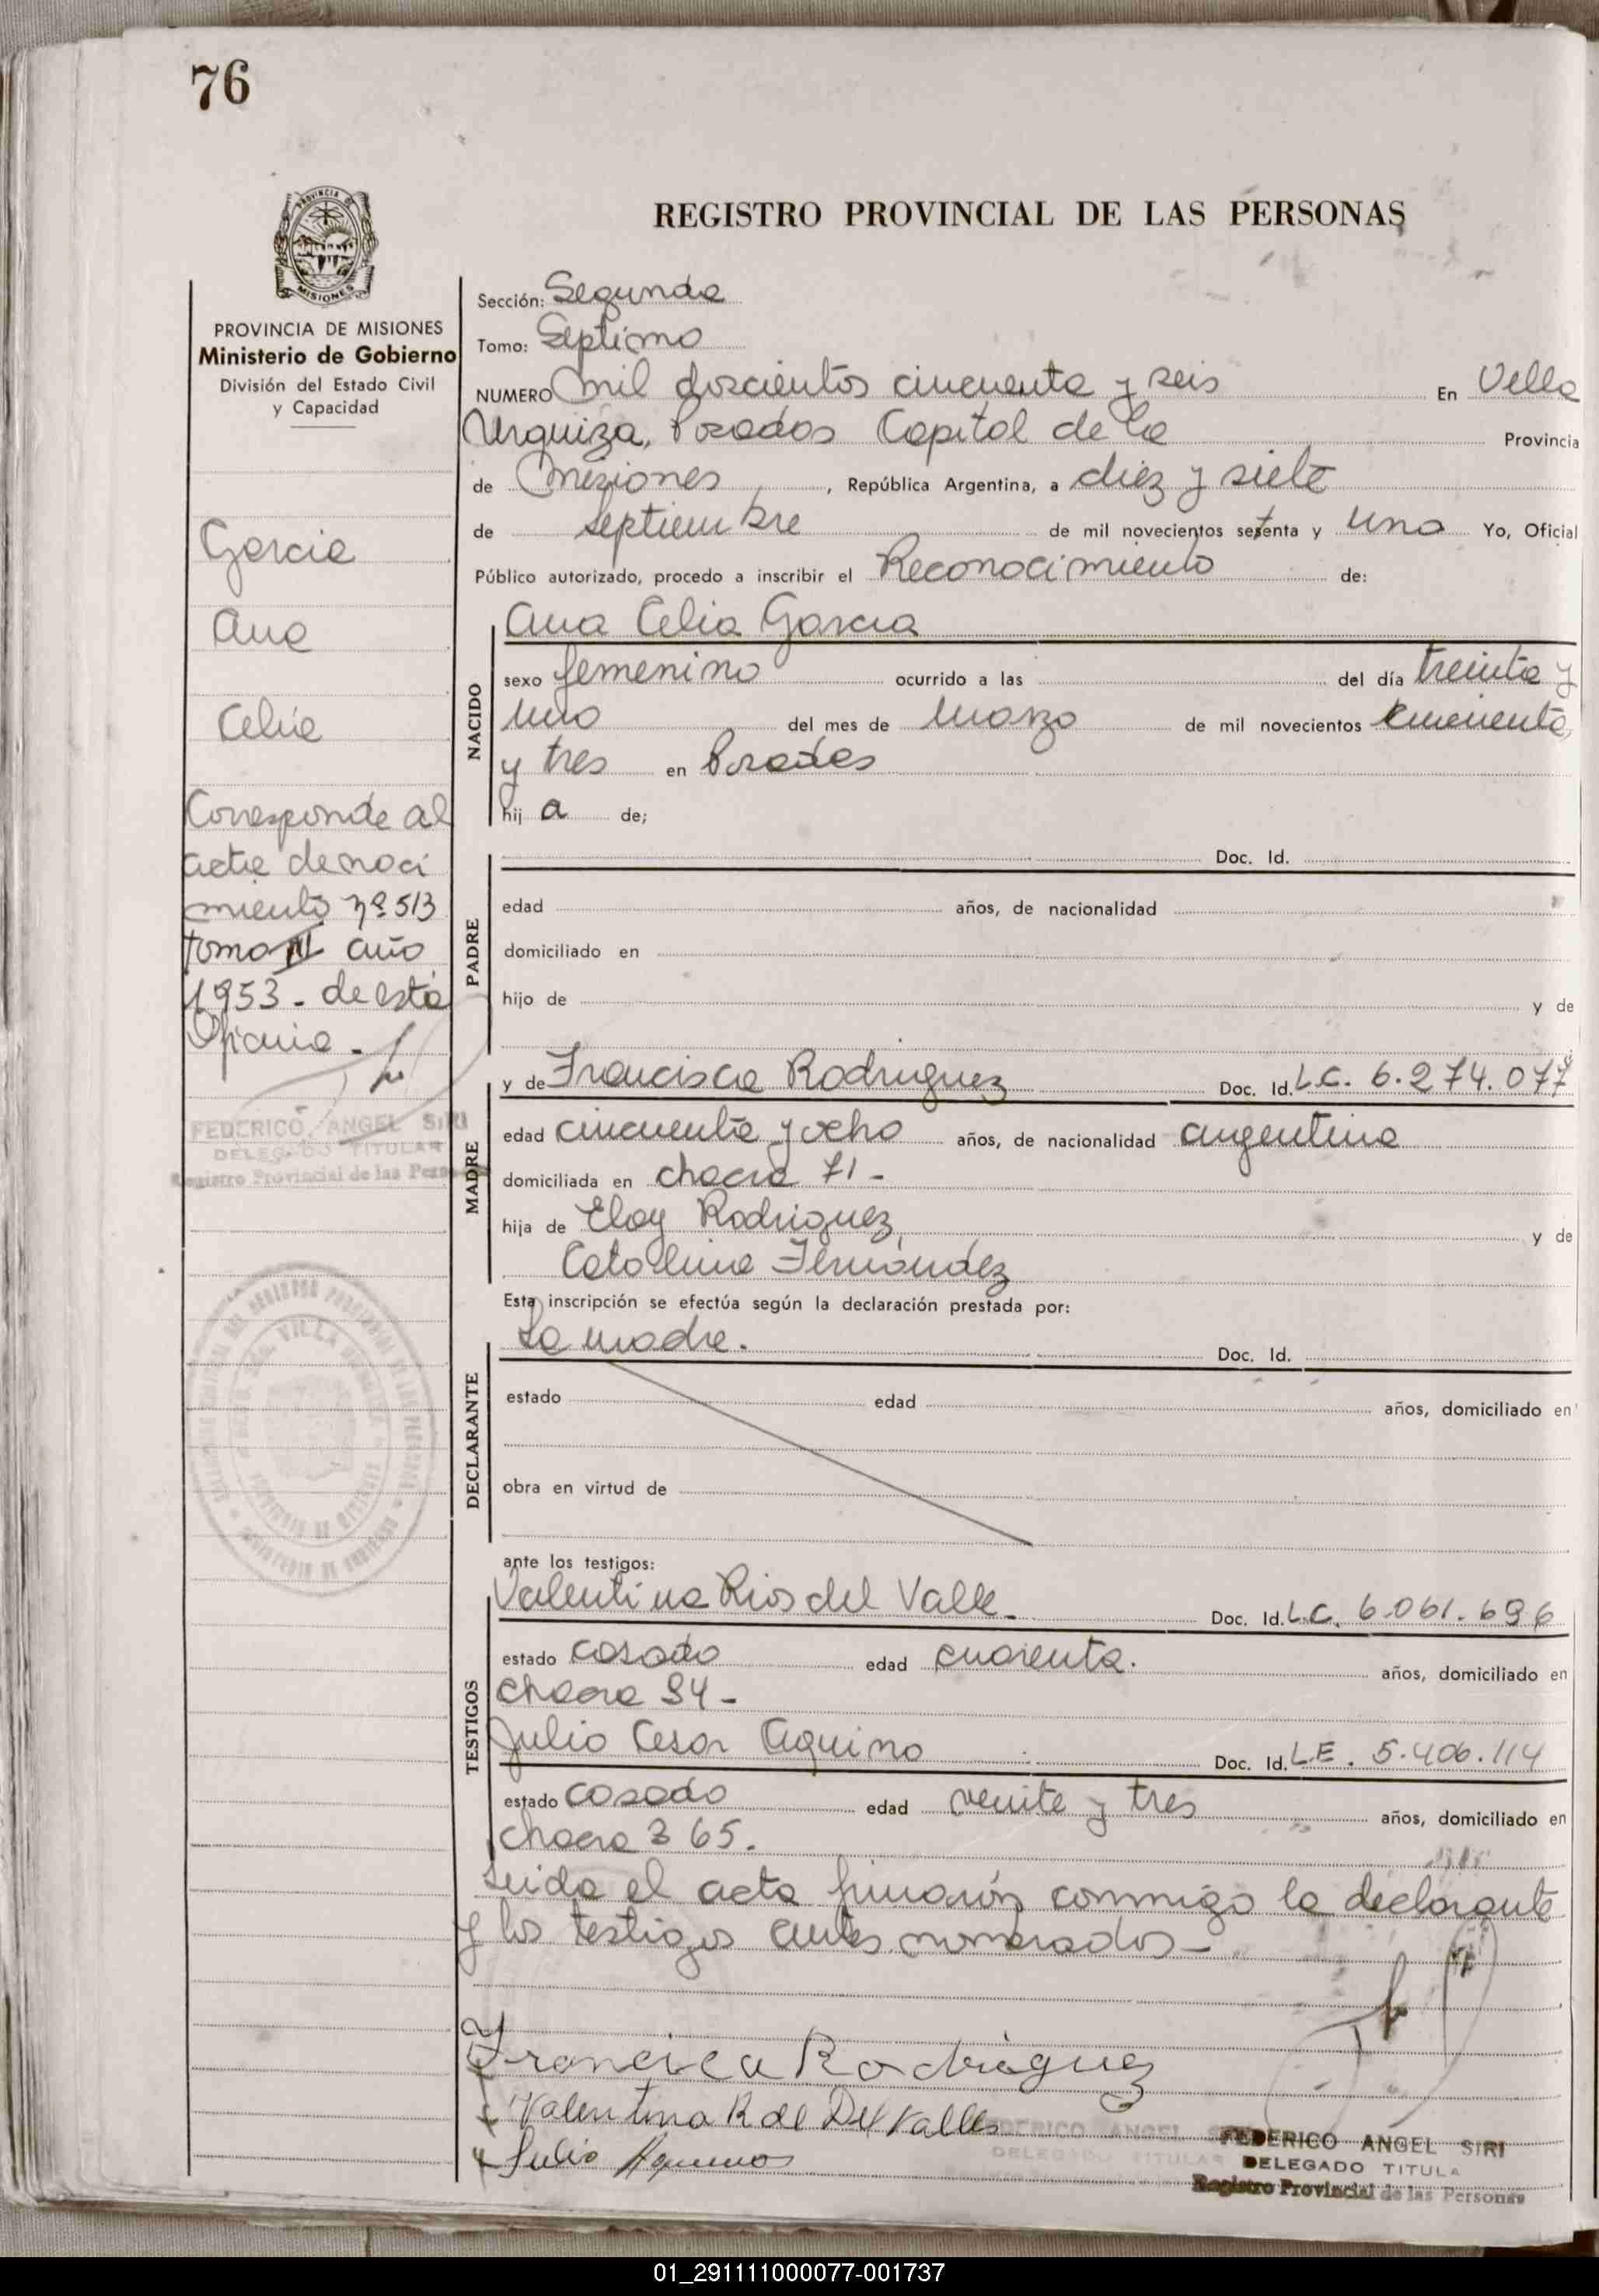 76
PROVINCIA DE MISIONES
Ministerio de Gobierno
División del Estado Civil
y Capacidad
Garcia
Ana
Celia
Corresponde al
acta de naci
miento nº 513
tomo III año
1953 - de esta
Oficina -
FEDERICO ANGEL SIRI
DELEGADO TITULAR
Registro Provincial de las Personas
REGISTRO PROVINCIAL DE LAS PERSONAS
Sección: Segunda
Tomo: Septimo
NUMERO mil doscientos cincuenta y seis En Villa
Urquiza, Posadas Capital de la Provincia
de Misiones, República Argentina, a diez y siete
de septiembre de mil novecientos setenta y uno Yo, Oficial
Público autorizado, procedo a inscribir el Reconocimiento de:
NACIDO
Ana Celia Garcia
sexo femenino ocurrido a las del día treinta y
uno del mes de marzo de mil novecientos cincuenta
y tres en Posadas
hij a de;
PADRE
Doc. Id.
edad años, de nacionalidad
domiciliado en
hijo de y de
MADRE
y de Francisca Rodriguez Doc. Id. L.C. 6.274.077
edad cincuenta y ocho años, de nacionalidad argentina
domiciliada en chacra 71 -
hija de Eloy Rodriguez y de
Catalina Fernández
Esta inscripción se efectúa según la declaración prestada por:
DECLARANTE
La madre. Doc. Id.
estado edad años, domiciliado en
obra en virtud de
ante los testigos:
TESTIGOS
Valentina Rios del Valle - Doc. Id. L.C. 6.061.696
estado casado edad cuarenta. años, domiciliado en
chacra 94 -
Julio Cesar Aquino Doc. Id. L.E. 5.406.114
estado casado edad veinte y tres años, domiciliado en
chacra 3 65.
Leida el acta firmarón conmigo la declarante
y los testigos antes nombrados -
Francisca Rodriguez
Valentina R de Del Valle
Julio Aquino
FEDERICO ANGEL SIRI
DELEGADO TITULA
Registro Provincial de las Personas
01_291111000077-001737